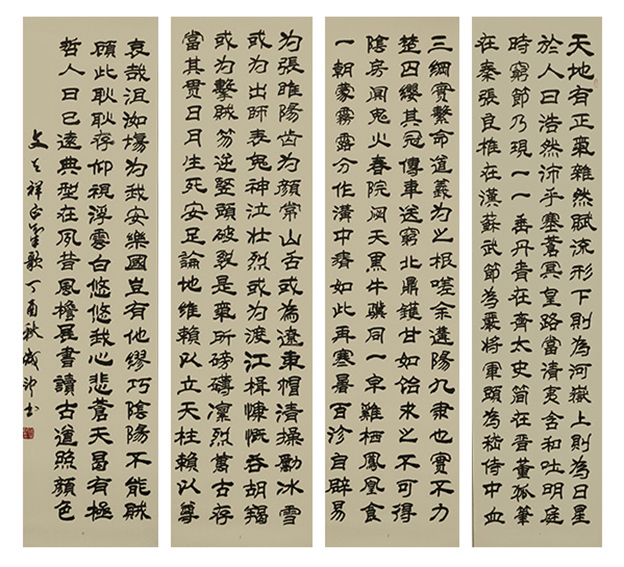 天地有正氣雜然賦流形下則為河嶽上則為日星
於人曰浩然沛乎塞蒼冥皇路當清夷含和吐明庭
時窮節乃現一一垂丹青在齊太史簡在晉董狐筆
在秦張良椎在漢蘇武節為嚴將軍頭為嵇侍中血
三綱實繫命道義為之根嗟余遘陽九隸也實不力
楚囚纓其冠傳車送窮北鼎鑊甘如飴求之不可得
陰房闃鬼火春院閟天黑牛驥同一皁雞栖鳳凰食
一朝蒙霧露分作溝中瘠如此再寒暑百沴自辟易
為張睢陽齒為顏常山舌或為遼東帽清操勵冰雪
或為出師表鬼神泣壯烈或為渡江楫慷慨吞胡羯
或為擊賊笏逆豎頭破裂是氣所磅礡凜烈萬古存
當其貫日月生死安足論地維賴以立天柱賴以尊
哀哉沮洳場為我安樂國豈有他繆巧陰陽不能賊
顧此耿耿存仰視浮雲白悠悠我心悲蒼天曷有極
哲人日已遠典型在夙昔風檐展書讀古道照顏色
文天祥正氣歌丁酉秋成書